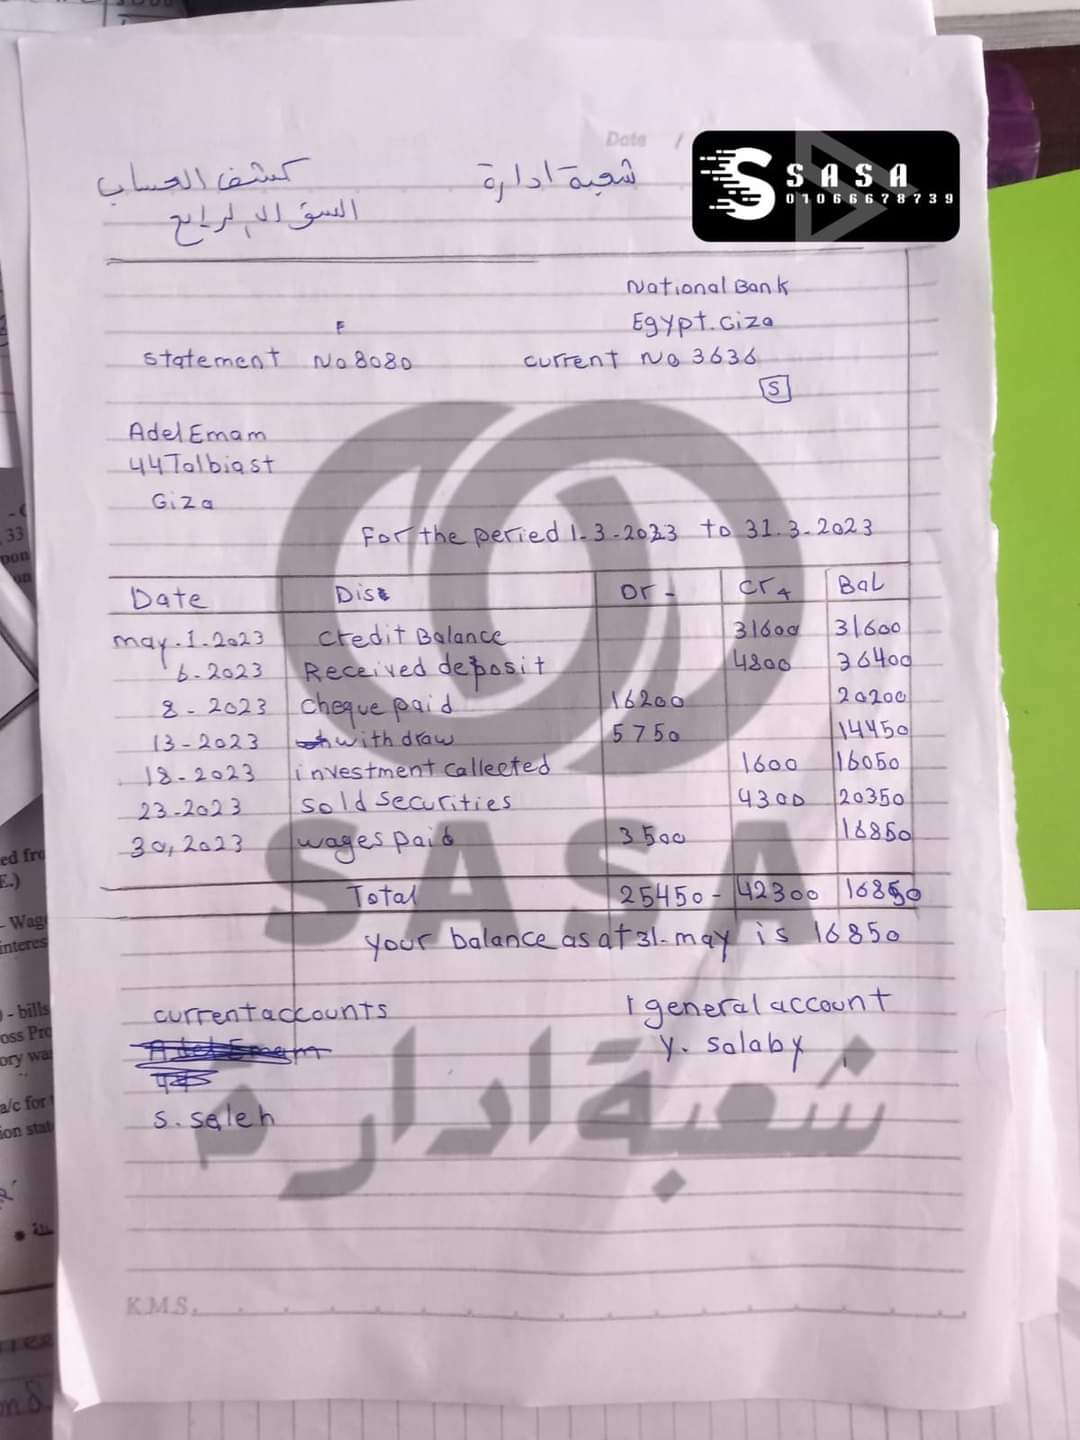 Date /
SASA
01066678739
شعبة ادارة
كشف الحساب
National Bank
Egypt. Giza
Statement No 8080
current No 3636
S
Adel Emam
44 Talbia st
Giza
For the peried 1-3-2023 to 31.3-2023
Date Dis Dr - Cr + Bal
may.1.2023 Credit Balance 31600 31600
6-2023 Received deposit 4800 36400
8-2023 cheque paid 16200 20200
13-2023 with draw 5750 14450
18-2023 investment callected 1600 16050
23-2023 Sold Securities 4300 20350
30,2023 wages paid 3500 16850
Total 25450- 42300 16850
your balance as at 31-may is 16850
current accounts general account
Adel Emam
Y. Salaby
S. Saleh
SASA
شعبة ادارة
K.M.S.
ed fro
E.)
- Wag
interes
- bills
oss Pro
ory wa
a/c for
ion stat